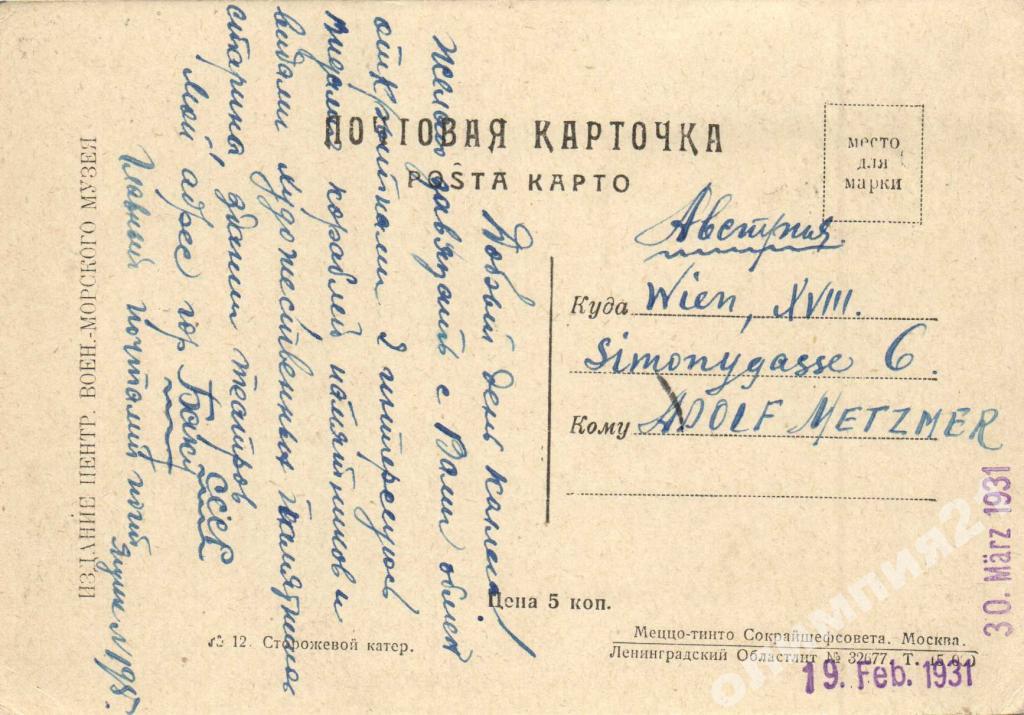 ПОЧТОВАЯ КАРТОЧКА
POŜTA KAPTO
место
для
марки
Австрия
Куда Wien, XVIII.
Simonygasse 6.
Кому ADOLF METZMER
Добрый день коллега!
Желаю завязать с Вами обмен
открытками я интересуюсь
видами кораблей памятников и
видами художественных памятников
старина здании театров
мой адрес гор Баку СССР
Главный почтамт
ящик N 198.
ИЗДАНИЕ ЦЕНТР. ВОЕН.-МОРСКОГО МУЗЕЯ
Цена 5 коп.
№ 12. Сторожевой катер.
Меццо-тинто Сокрайшефсовета. Москва.
Ленинградский Областлит № 32677. Т. 15.000
30. März 1931
19. Feb. 1931
олимпия2